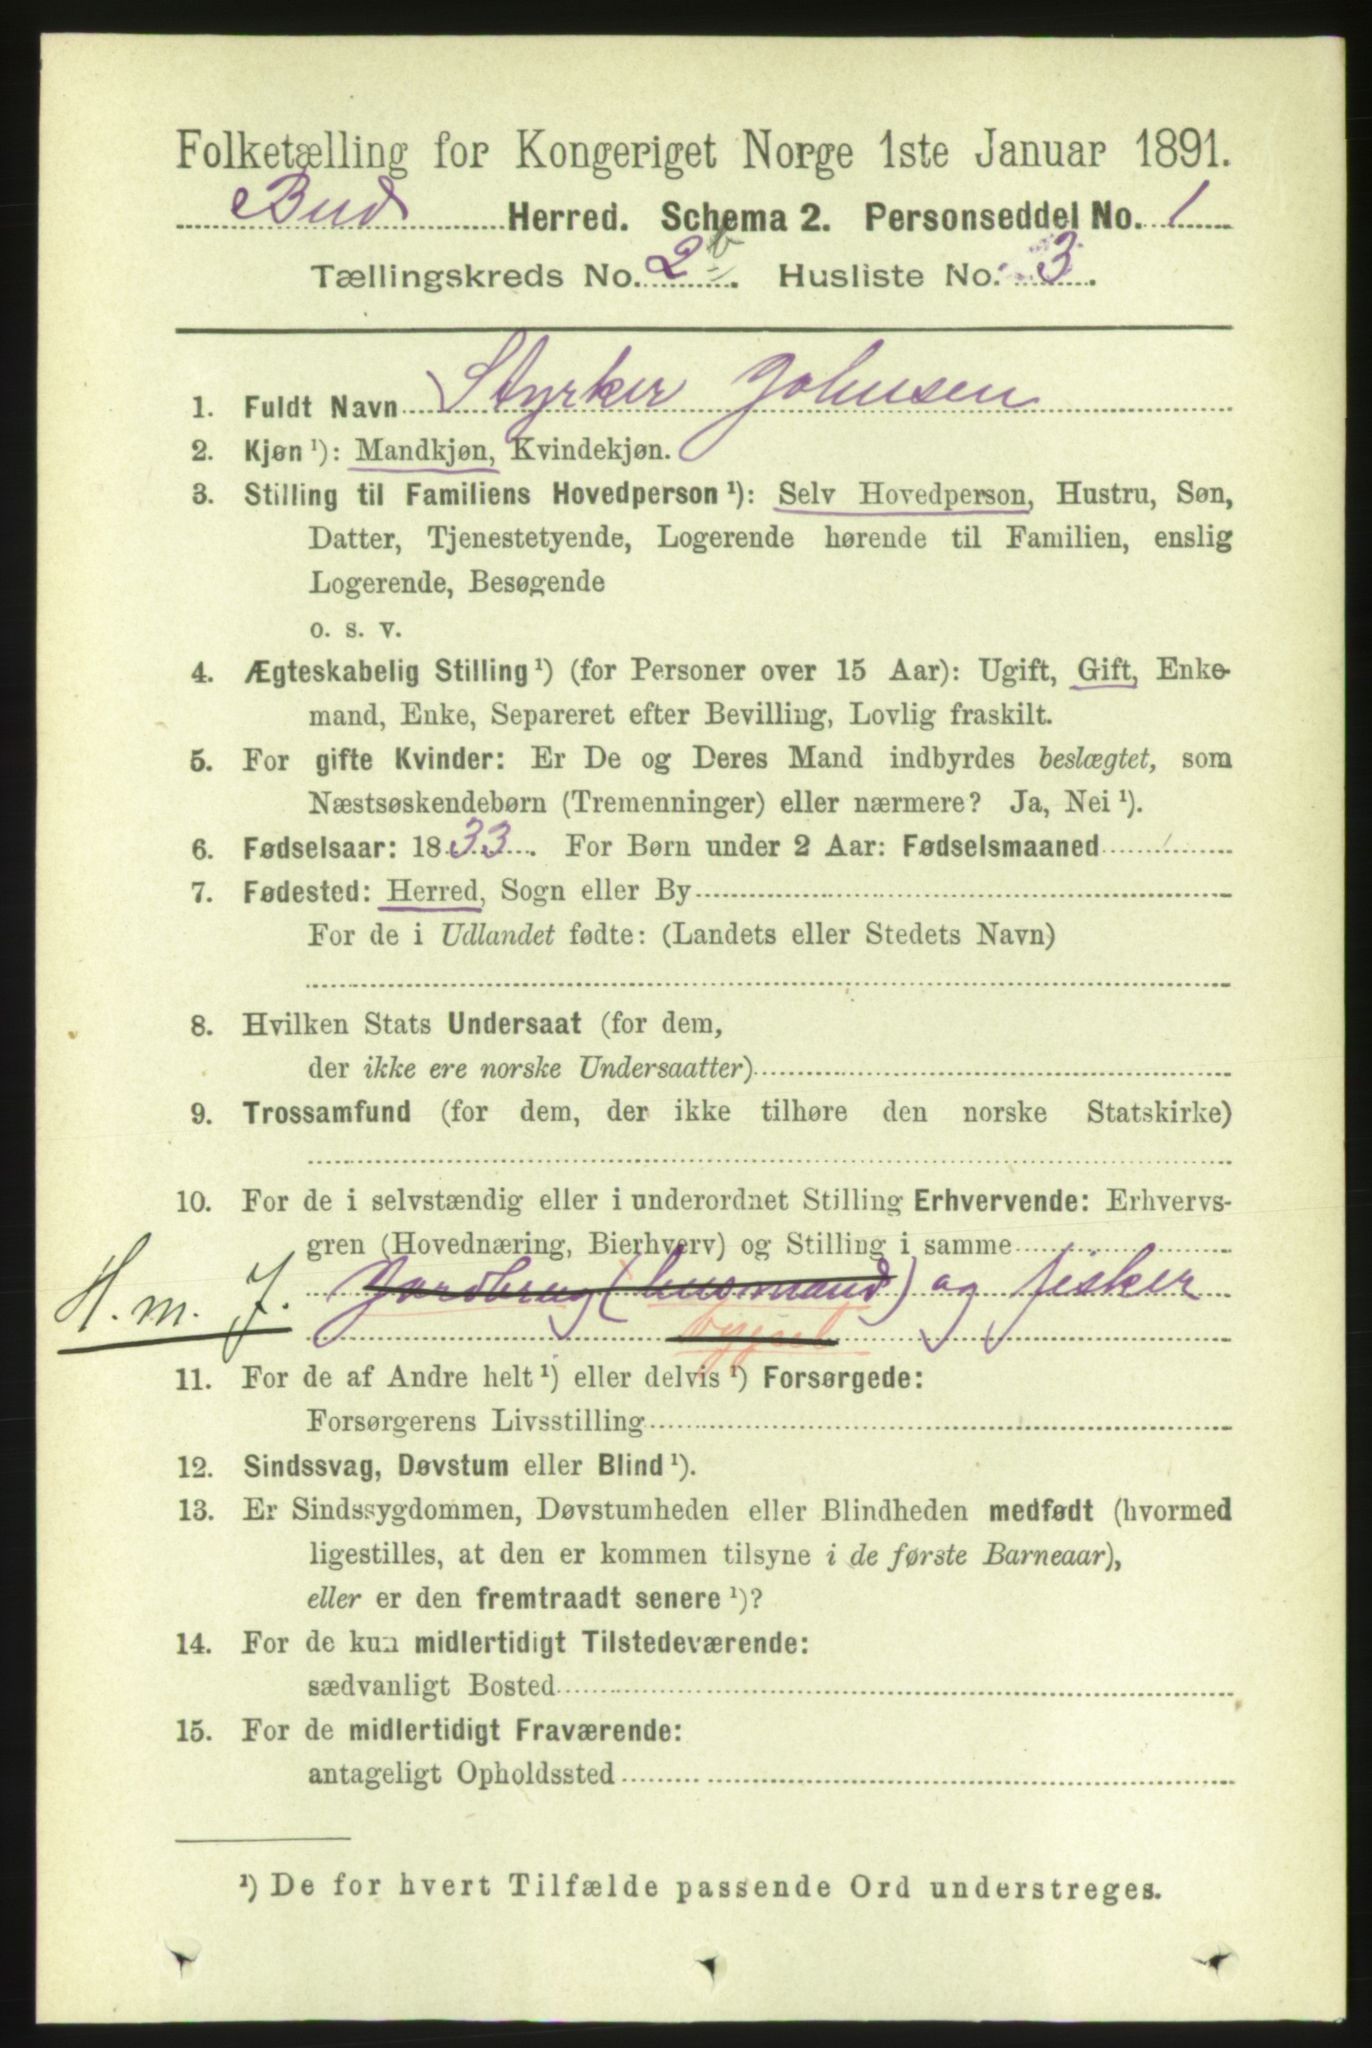 Folketælling for Kongeriget Norge 1ste Januar 1891.
Bud Herred. Schema 2. Personseddel No. 1
Tællingskreds No. 2 b. Husliste No. 3.
1. Fuldt Navn Styrker Johnsen
2. Kjøn ¹): Mandkjøn, Kvindekjøn.
3. Stilling til Familiens Hovedperson ¹): Selv Hovedperson, Hustru, Søn,
Datter, Tjenestetyende, Logerende hørende til Familien, enslig
Logerende, Besøgende
o. s. v.
4. Ægteskabelig Stilling ¹) (for Personer over 15 Aar): Ugift, Gift, Enke-
mand, Enke, Separeret efter Bevilling, Lovlig fraskilt.
5. For gifte Kvinder: Er De og Deres Mand indbyrdes beslægtet, som
Næstsøskendebørn (Tremenninger) eller nærmere? Ja, Nei ¹).
6. Fødselsaar: 1833. For Børn under 2 Aar: Fødselsmaaned
7. Fødested: Herred, Sogn eller By
For de i Udlandet fødte: (Landets eller Stedets Navn)
8. Hvilken Stats Undersaat (for dem,
der ikke ere norske Undersaatter)
9. Trossamfund (for dem, der ikke tilhøre den norske Statskirke)
10. For de i selvstændig eller i underordnet Stilling Erhvervende: Erhvervs-
gren (Hovednæring, Bierhverv) og Stilling i samme
H. m. J. Jordbrug (husmand) og fisker
bygsel
11. For de af Andre helt ¹) eller delvis ¹) Forsørgede:
Forsørgerens Livsstilling
12. Sindssvag, Døvstum eller Blind ¹).
13. Er Sindssygdommen, Døvstumheden eller Blindheden medfødt (hvormed
ligestilles, at den er kommen tilsyne i de første Barneaar),
eller er den fremtraadt senere ¹)?
14. For de kun midlertidigt Tilstedeværende:
sædvanligt Bosted
15. For de midlertidigt Fraværende:
antageligt Opholdssted
¹) De for hvert Tilfælde passende Ord understreges.